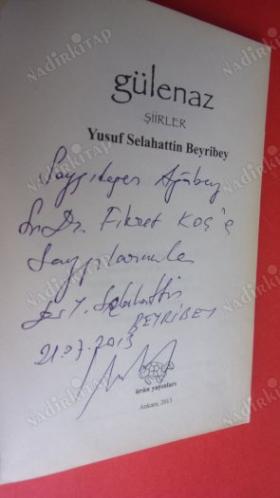 gülenaz
ŞİİRLER
Yusuf Selahattin Beyribey
Saygıdeğer Ağabey
Sn. Dr. Fikret KOÇ'a
Saygılarımla
Y. Selahattin
BEYRİBEY
21.07.2013
ürün yayınları
Ankara, 2013
NADİRKİTAP